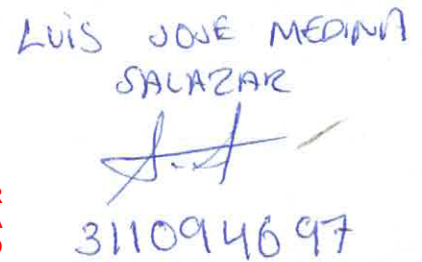 LUIS JOSE MEDINA
SALAZAR
3110946697
R
A
O